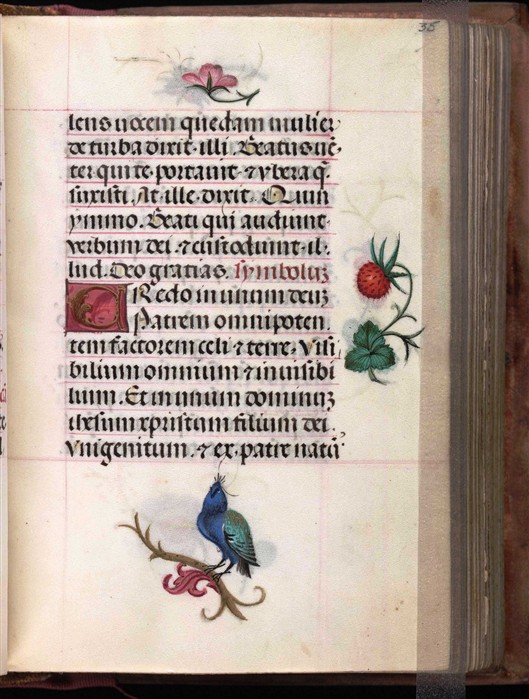 35
lens uocem quedam mulier
de turba dixit illi. Beatus uē-
ter qui te portauit ⁊ vbera q̄
suxisti. At ille dixit. Quin
ymmo. Beati qui audiunt
verbum dei ⁊ custodiunt il-
lud. Deo gratias. Symboluȝ
CRedo in unum deuȝ
Patrem omnipoten
tem factorem celi ⁊ terre, visi
bilium omnium ⁊ inuisibi
lium. Et in unum dominuȝ
ihesum xpristum filium dei.
Vnigenitum. ⁊ ex patre natū